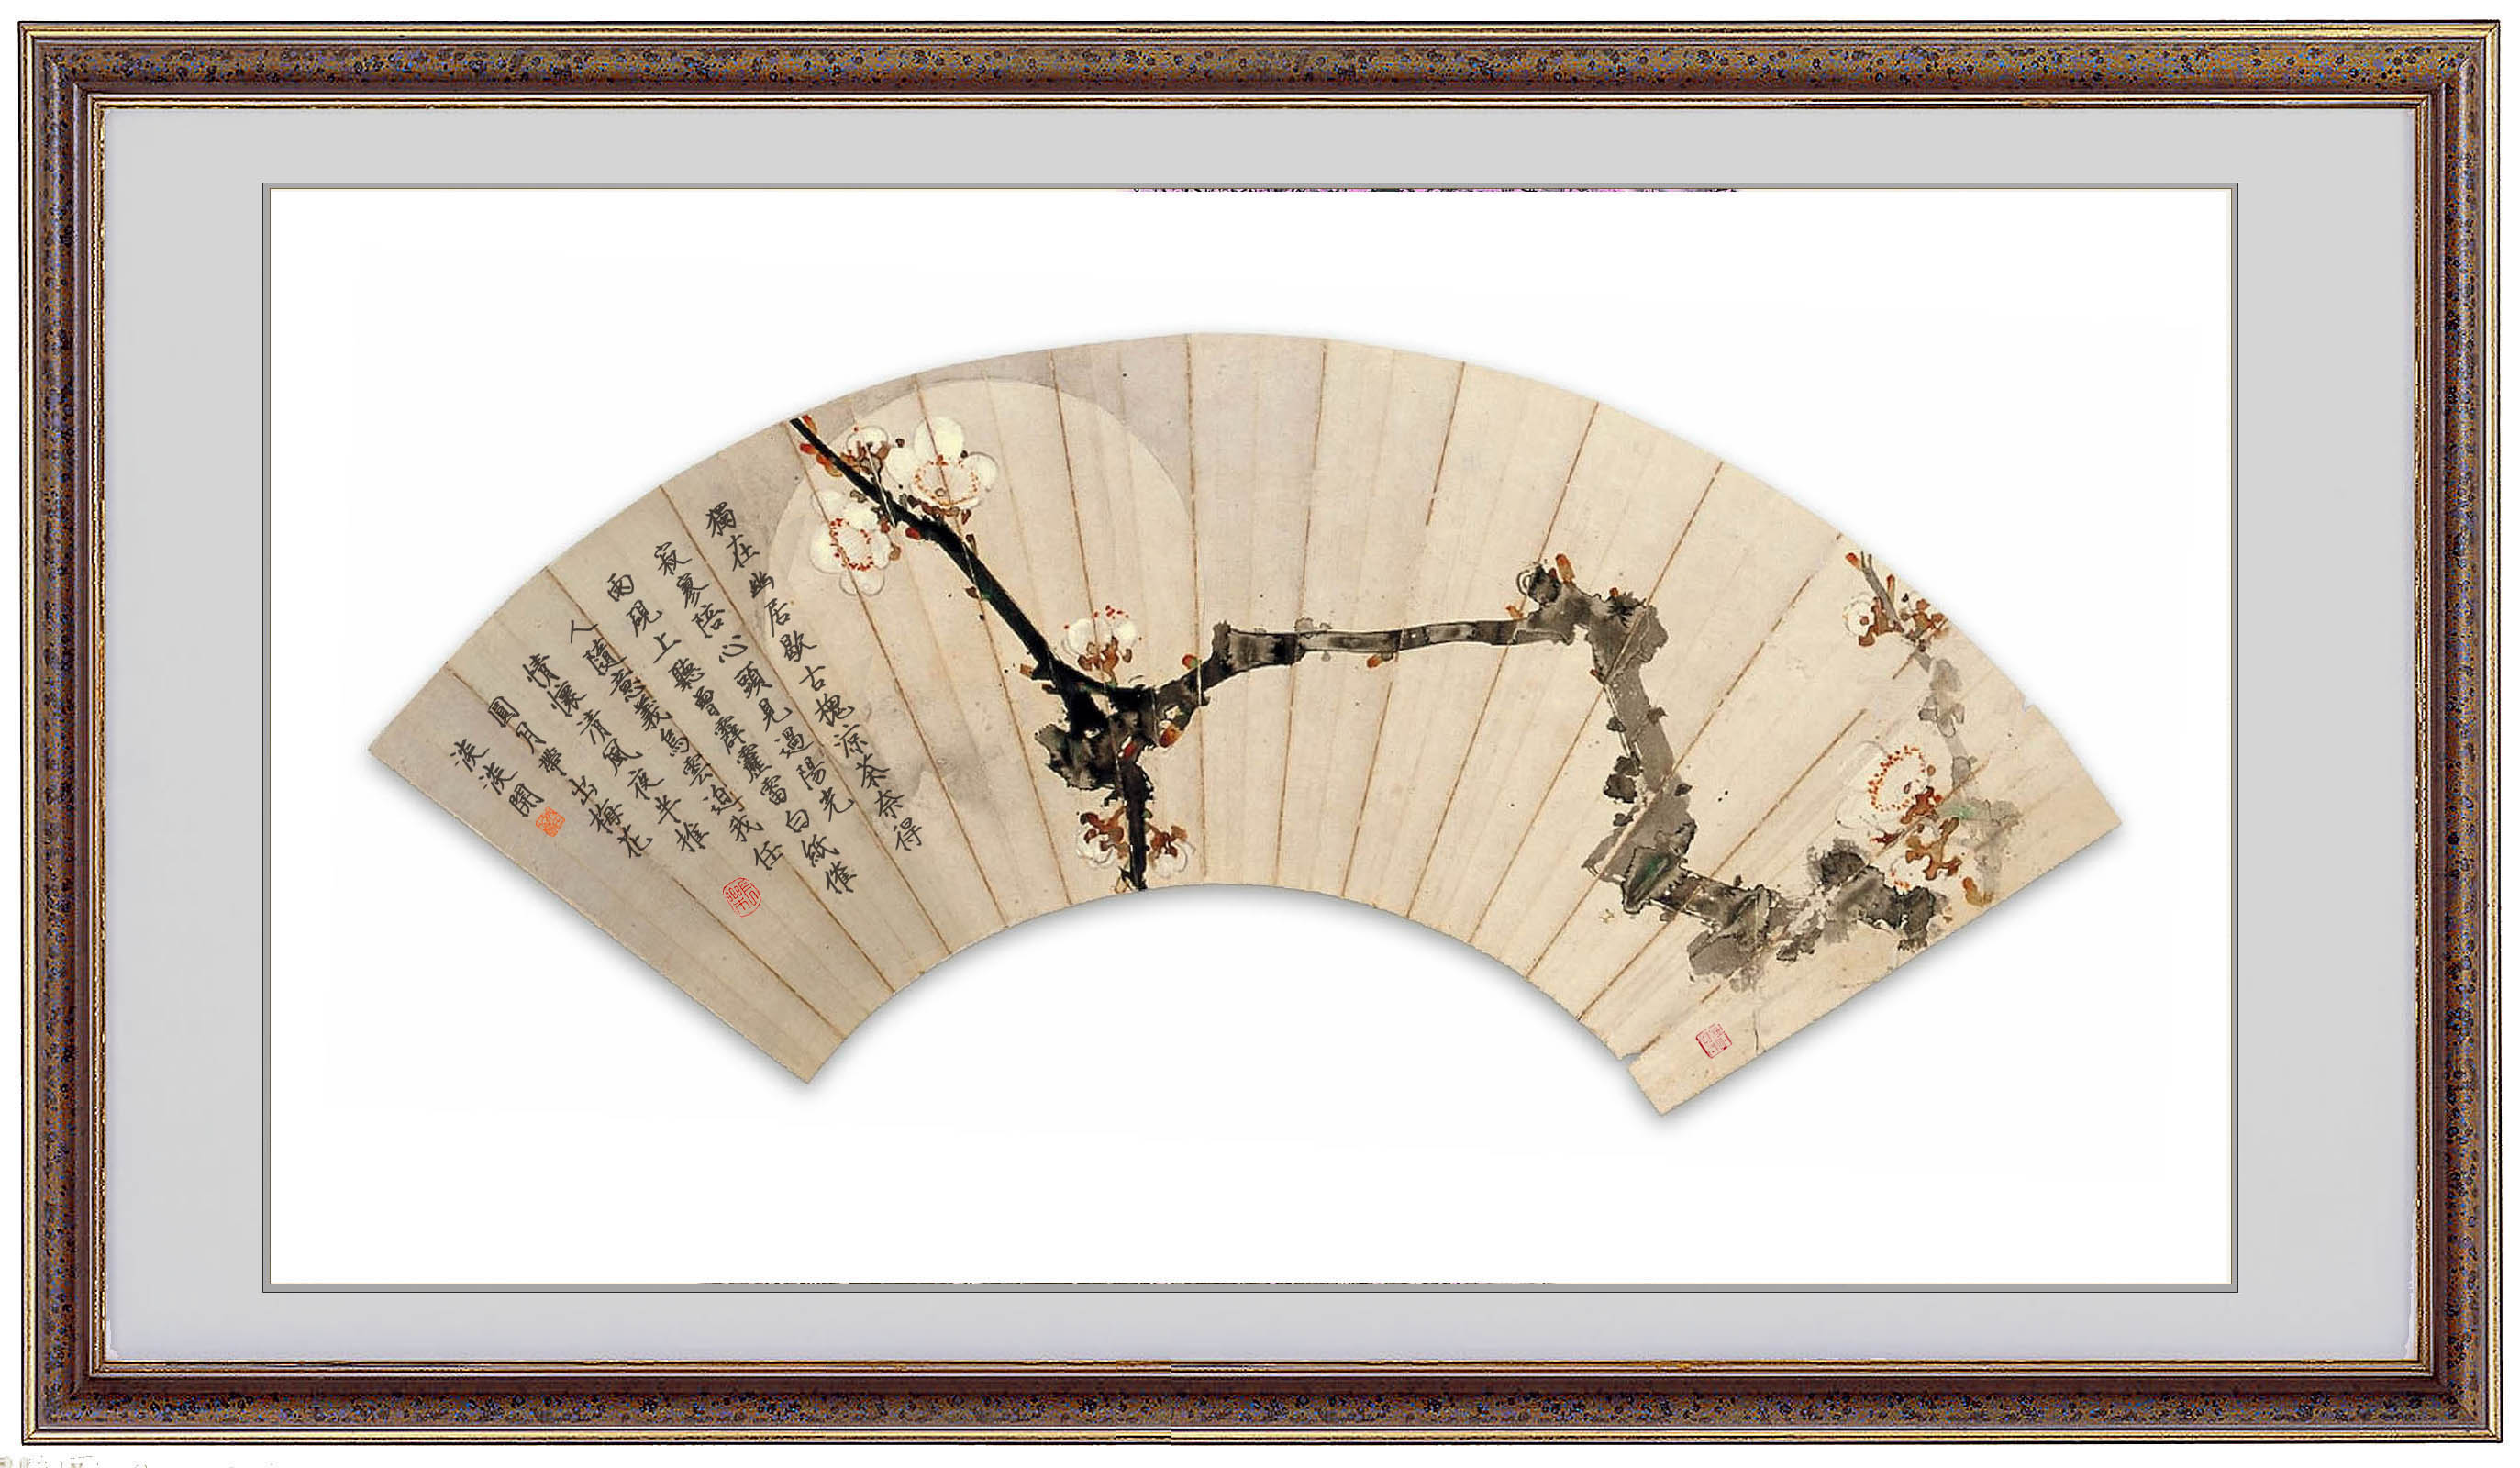 獨在幽居歇古槐涼茶奈得
寂寥陪心頭見過陽光
雨硯上聽曾霹靂雷白紙催
人隨意義烏雲迫我任
情懷清風夜半推
圓月帶出梅花
淡淡開